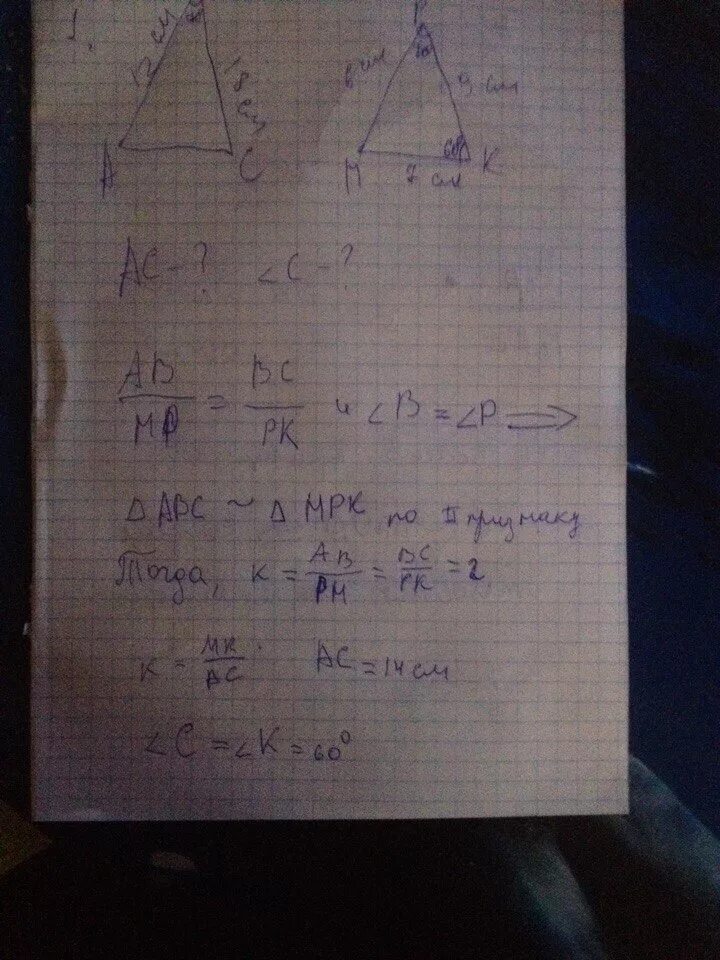 1.
12 см
18 см
A
C
P
6 см
9 см
60°
M
7 см
K
AC - ? ∠C - ?
AB/MP = BC/PK и ∠B = ∠P ⟹
△ ABC ~ △ MPK по II признаку
Тогда, K = AB/PM = BC/PK = 2
K = MK/AC AC = 14 см
∠C = ∠K = 60°